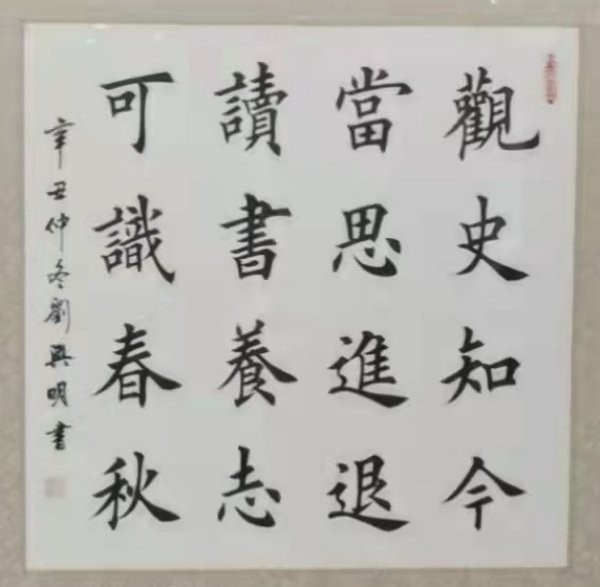 觀史知今
當思進退
讀書養志
可識春秋
辛丑仲冬劉興明書